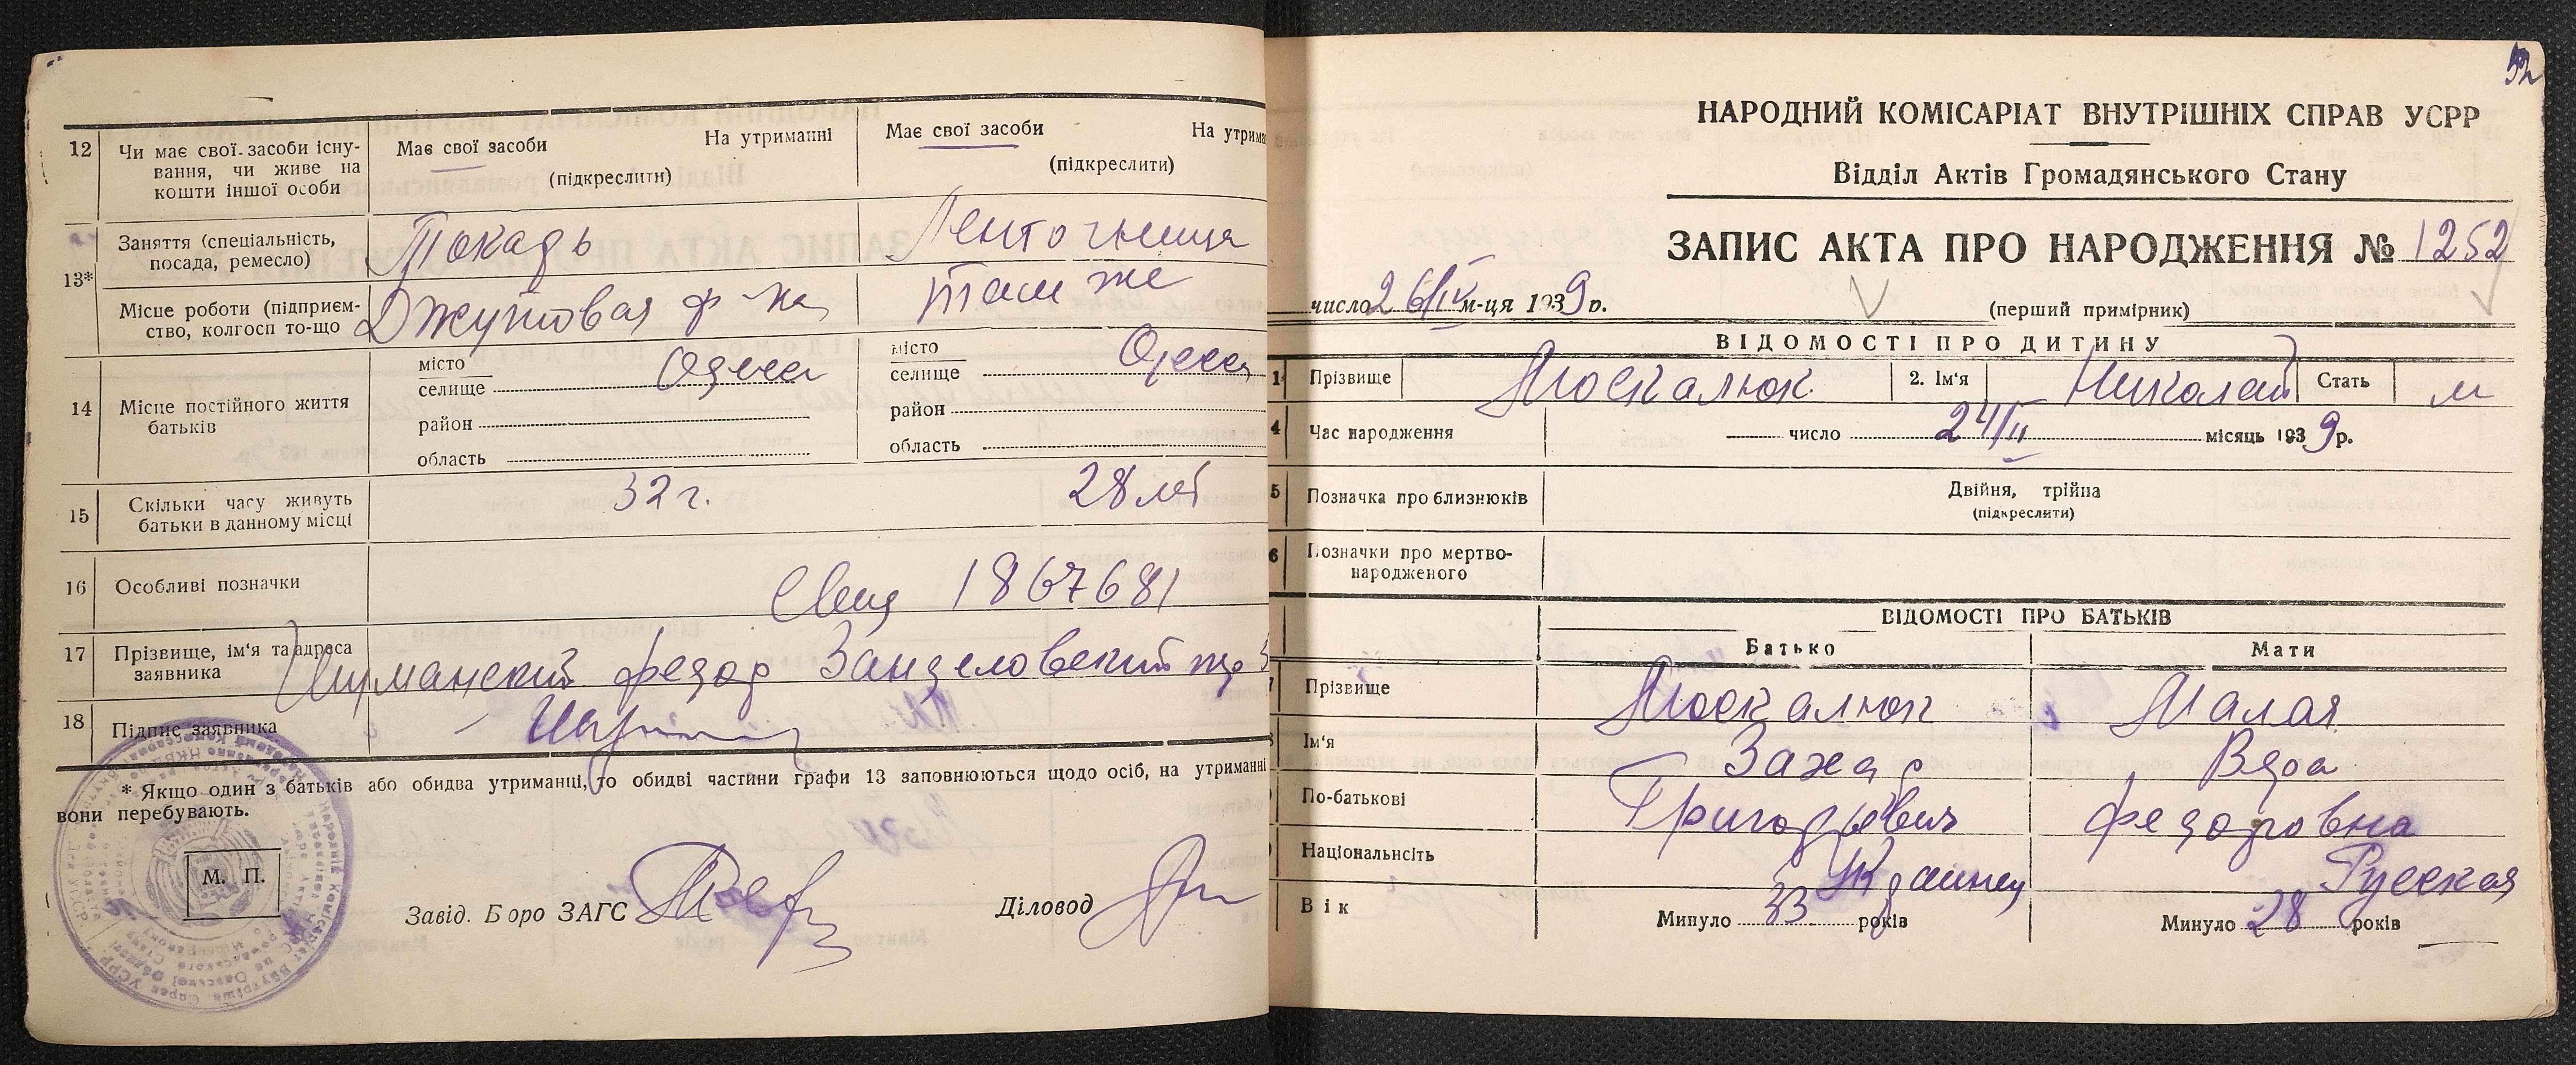 12 Чи має свої засоби існу- Має свої засоби На утриманні Має свої засоби
вання, чи живе на (підкреслити) (підкреслити)
кошти іншої особи
13* Заняття (спеціальність, Токарь Ленточница
посада, ремесло)
Місце роботи (підприєм- Джутовая ф-ка там же
ство, колгосп то-що
14 Місце постійного життя місто Одесса місто Одесса
батьків селище селище
район район
область область
15 Скільки часу живуть 32 г. 28 лет
батьки в данному місці
16 Особливі позначки 1867681
17 Прізвище, ім'я та адреса Федор
заявника
18 Підпис заявника
* Якщо один з батьків або обидва утриманці, то обидві частини графи 13 заповнюються щодо осіб, на утриманні
вони перебувають.
М. П.
Завід. Бюро ЗАГС Діловод
НАРОДНИЙ КОМІСАРІАТ ВНУТРІШНІХ СПРАВ УСРР
Відділ Актів Громадянського Стану
ЗАПИС АКТА ПРО НАРОДЖЕННЯ № 1252
число 26/IV м-ця 1939 р.
(перший примірник)
ВІДОМОСТІ ПРО ДИТИНУ
1 Прізвище Москалюк 2. Ім'я Николай Стать м
4 Час народження число 24/II місяць 1939 р.
5 Позначка про близнюків Двійня, трійна
(підкреслити)
6 Позначки про мертво-
народженого
ВІДОМОСТІ ПРО БАТЬКІВ
Батько Мати
Прізвище Москалюк Малая
Ім'я Захар Вера
По-батькові Григорьевич Федоровна
Національність Украинец Русская
Вік Минуло 33 років Минуло 28 років